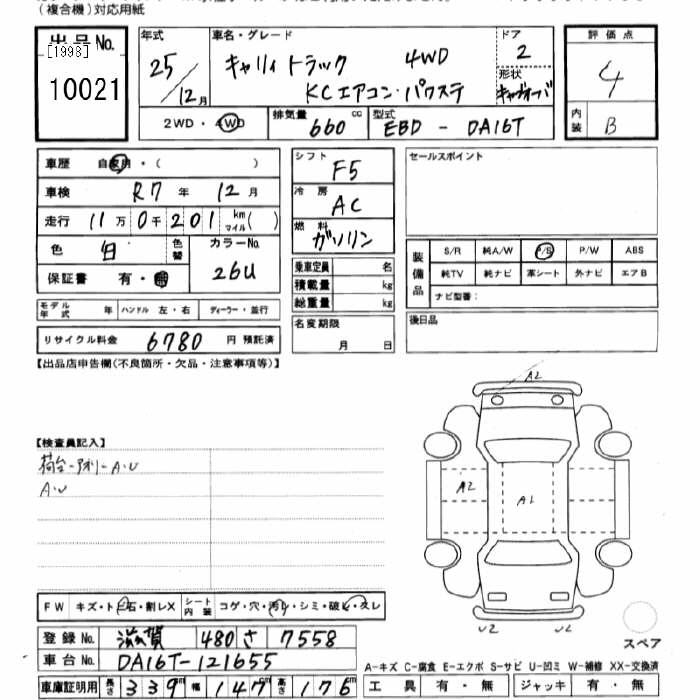 (複合機)対応用紙
出品No.
[1993]
10021
年式
25/12月
車名・グレード
キャリィトラック 4WD
KCエアコン・パワステ
ドア
2
形状
評価点
4
内装
B
2WD・4WD
排気量
660cc
型式
EBD-DA16T
車歴 自家用・( )
車検 R7年 12月
走行 11万0千201km マイル( )
色 白 色替
カラーNo.
26U
保証書 有・無
シフト
F5
冷房
AC
燃料
ガソリン
乗車定員 名
積載量 kg
総重量 kg
セールスポイント
装備品
S/R 純A/W P/S P/W ABS
純TV 純ナビ 革シート 外ナビ エアB
ナビ型番:
モデル年式 年 ハンドル 左・右 ディーラー・並行
リサイクル料金 6780 円 預託済
名変期限
月 日
後日品
【出品店申告欄(不良箇所・欠品・注意事項等)】
A2
【検査員記入】
荷台-アオリ-A・U
A・U
A2
A1
FW キズ・トビ石・割レX シート内装 コゲ・穴・汚レ・シミ・破レ・スレ
U2 U2
スペア
登録No. 滋賀 480 さ 7558
車台No. DA16T-121655
A-キズ C-腐食 E-エクボ S-サビ U-凹ミ W-補修 XX-交換済
車庫証明用 長さ 339cm 幅 147cm 高さ 176cm
工具 有・無 ジャッキ 有・無